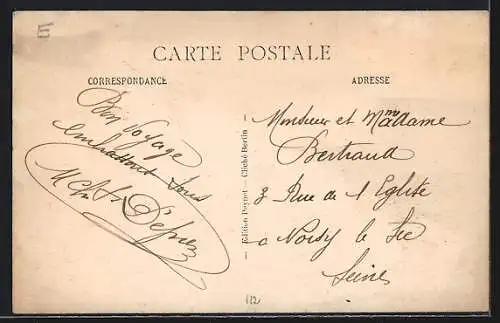 E
CARTE POSTALE
CORRESPONDANCE
ADRESSE
Bon Voyage
embrassons tous
M et Mme Deprez
Edition Peynet — Cliché Bertin
Monsieur et Madame
Bertraud
3 Rue de l Eglite
a Noisy le Sec
Seine
112